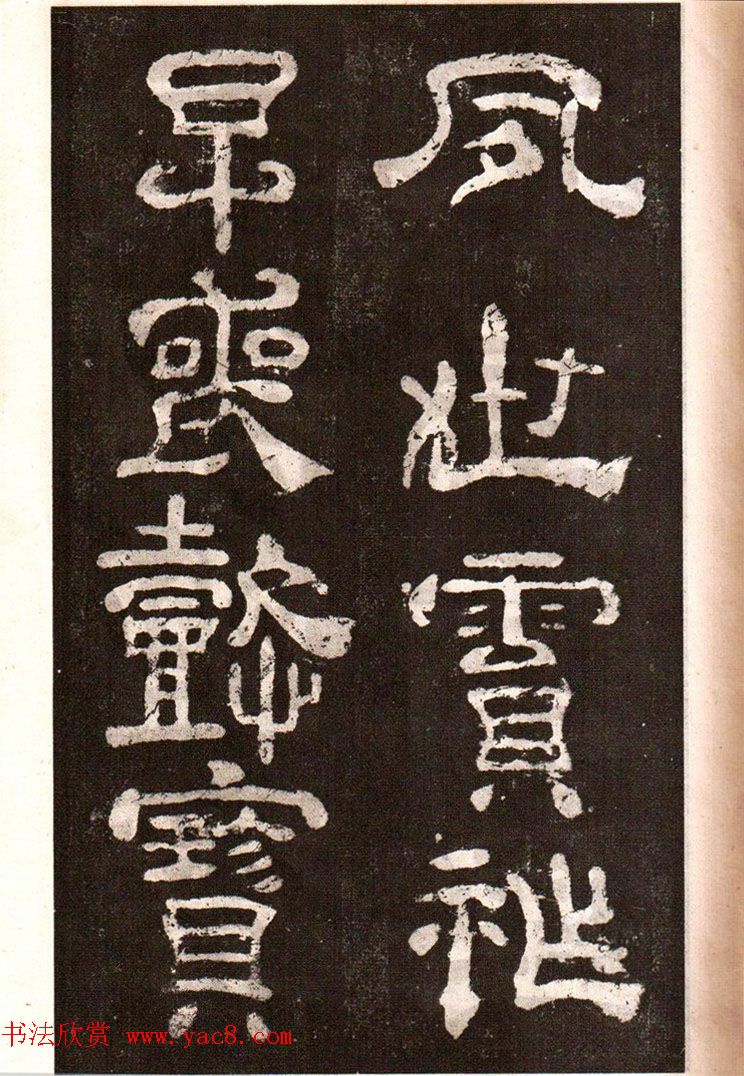 夙世霣祚
早喪懿寶
书法欣赏 www.yac8.com